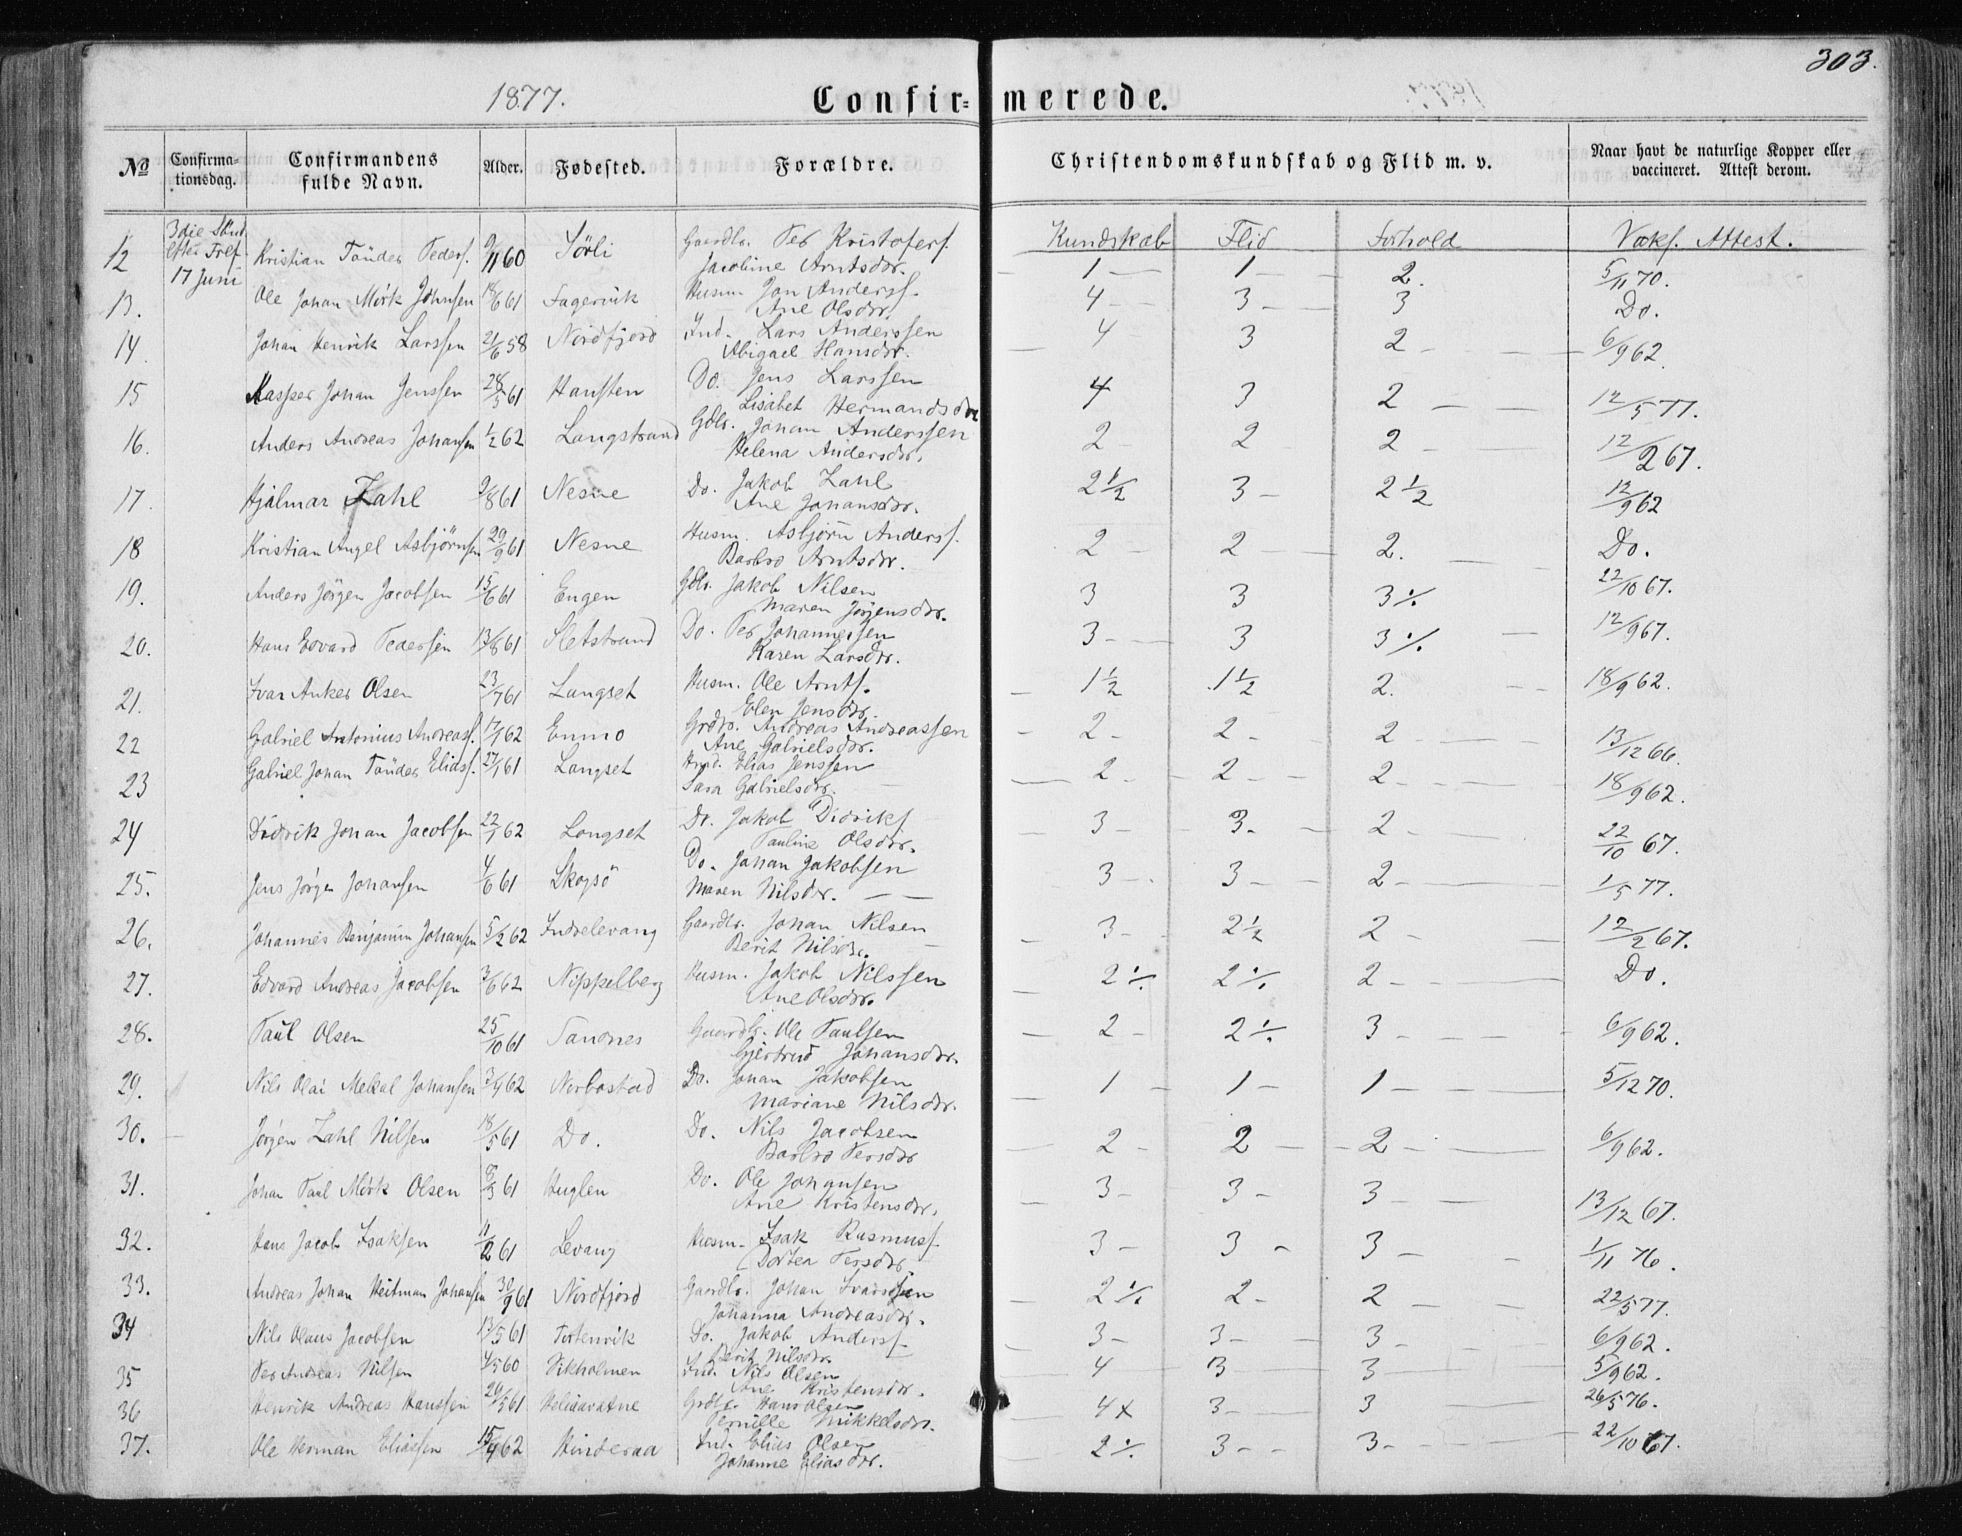 303.
1877.
Confirmerede.
№ Confirmationsdag. Confirmandens fulde Navn. Alder. Fødested. Forældre. Christendomskundskab og Flid m. v. Naar havt de naturlige Kopper eller vaccineret. Attest derom.
3die Sönd. efter Tref. 17 Juni
Kundskab Flid Forhold Vaks. Attest.
12 Kristian Tönder Peders. 9/11 60 Sörli Gaardbr. Per Kristofers. Jacobine Arntsdr. 1 1 2. 5/11 70.
13. Ole Johan Mörk Johnsen 18/6 61 Fagervik Husm. Jon Anders. Ane Olsdr. 4 3 3 Do.
14. Johan Henrik Larssen 21/6 58 Nordfjord Ind. Lars Anderssen Abigael Hansdr. 4 3 2 6/9 62.
15 Kasper Johan Jenssen 28/5 61 Hansten Do. Jens Larssen Lisabet Hermandsdr 4 3 2 12/5 77.
16. Anders Andreas Johansen 1/2 62 Langstrand Gdbr. Johan Anderssen Helena Andersdr. 2 2 2 12/2 67.
17. Hjalmar Zahl 9/8 61 Nesne Do. Jakob Zahl Ane Johansdr. 2½ 3 2½ 12/9 62
18 Kristian Angel Asbjörnsen 29/9 61 Nesne Husm. Asbjörn Anders. Barbro Arntsdr. 2 2 2. Do.
19. Anders Jörgen Jacobsen 15/6 61 Engen Gdbr. Jakob Nilsen Maren Jörgensdr. 3 3 3 ⁒ 22/10 67.
20. Hans Edvard Pedersen 13/8 61 Sletstrand Do. Per Johannessen Karen Larsdr. 3 3 3 ⁒ 12/9 67.
21. Ivar Anker Olsen 23/7 61 Langset Husm. Ole Arnts. Elen Jensdr. 1½ 1½ 2. 18/9 62.
22 Gabriel Antonius Andreas. 17/1 62 Enmo Grdbr. Andreas Andreassen Ane Gabrielsdr. 2 2 2 13/12 66.
23 Gabriel Johan Tönder Elias. 27/1 61 Langset Elias Jenssen Sara Gabrielsdr. 2 2 2 18/9 62.
24 Didrik Johan Jacobsen 22/1 62 Langset Do. Jakob Didriks. Pauline Olsdr. 3 3. 2 22/10 67.
25. Jens Jörgen Johansen 4/6 61 Skogsö Do. Johan Jakobsen Maren Nilsdr. 3 3 2 1/5 77.
26. Johannes Benjamin Johansen 5/2 62 Indrelevang Gaardbr. Johan Nilsen Berit Nilsdr. 3 2½ 2 12/2 67.
27. Edvard Andreas Jacobsen 3/6 62 Nippelberg Husm. Jakob Nilssen Ane Olsdr. 2 ⁒ 2 ⁒ 2 Do.
28. Paul Olsen 25/10 61 Sandnes Gaardbr. Ole Paulsen Gjertrud Johansdr. 2 2 ⁒ 3 6/9 62.
29. Nils Olai Mekal Johansen 3/4 62 Nerbostad Do. Johan Jakobsen Mariane Nilsdr. 1 1 1 5/12 70.
30. Jörgen Zahl Nilsen 18/5 61 Do. Do. Nils Jacobsen Barbro Persdr 2 2 2 6/9 62.
31. Johan Paul Mörk Olsen 8/3 61 Huglen Do. Ole Johansen Ane Kristensdr. 3 3 3 13/12 67.
32. Hans Jacob Isaksen 11/2 61 Levang Husm. Isak Rasmus. Dortea Persdr. 3 3 3 1/11 76.
33. Andreas Johan Heitman Johansen 30/9 61 Nordfjord Gaardbr. Johan Ivarssen Johanna Andreasdr. 2 ⁒ 2 2 22/5 77.
34 Nils Olaus Jacobsen 13/5 61 Do. Jakob Anders. Berit Nilsdr. 3 3 3 6/9 62.
35 Per Andreas Nilsen 4/5 60 Vikholmen Ind. Nils Olsen Ane Kristensdr. 4 3 3 5/9 62.
36 Henrik Andreas Hanssen 29/5 61 Grdbr. Hans Olsen Pernille Mikkelsdr. 4 x 3 3 26/5 76.
37. Ole Herman Eliassen 15/4 62 Hinderaa Ind. Elias Olsen Johanne Eliasdr. 2 ⁒ 3 3 22/10 67.